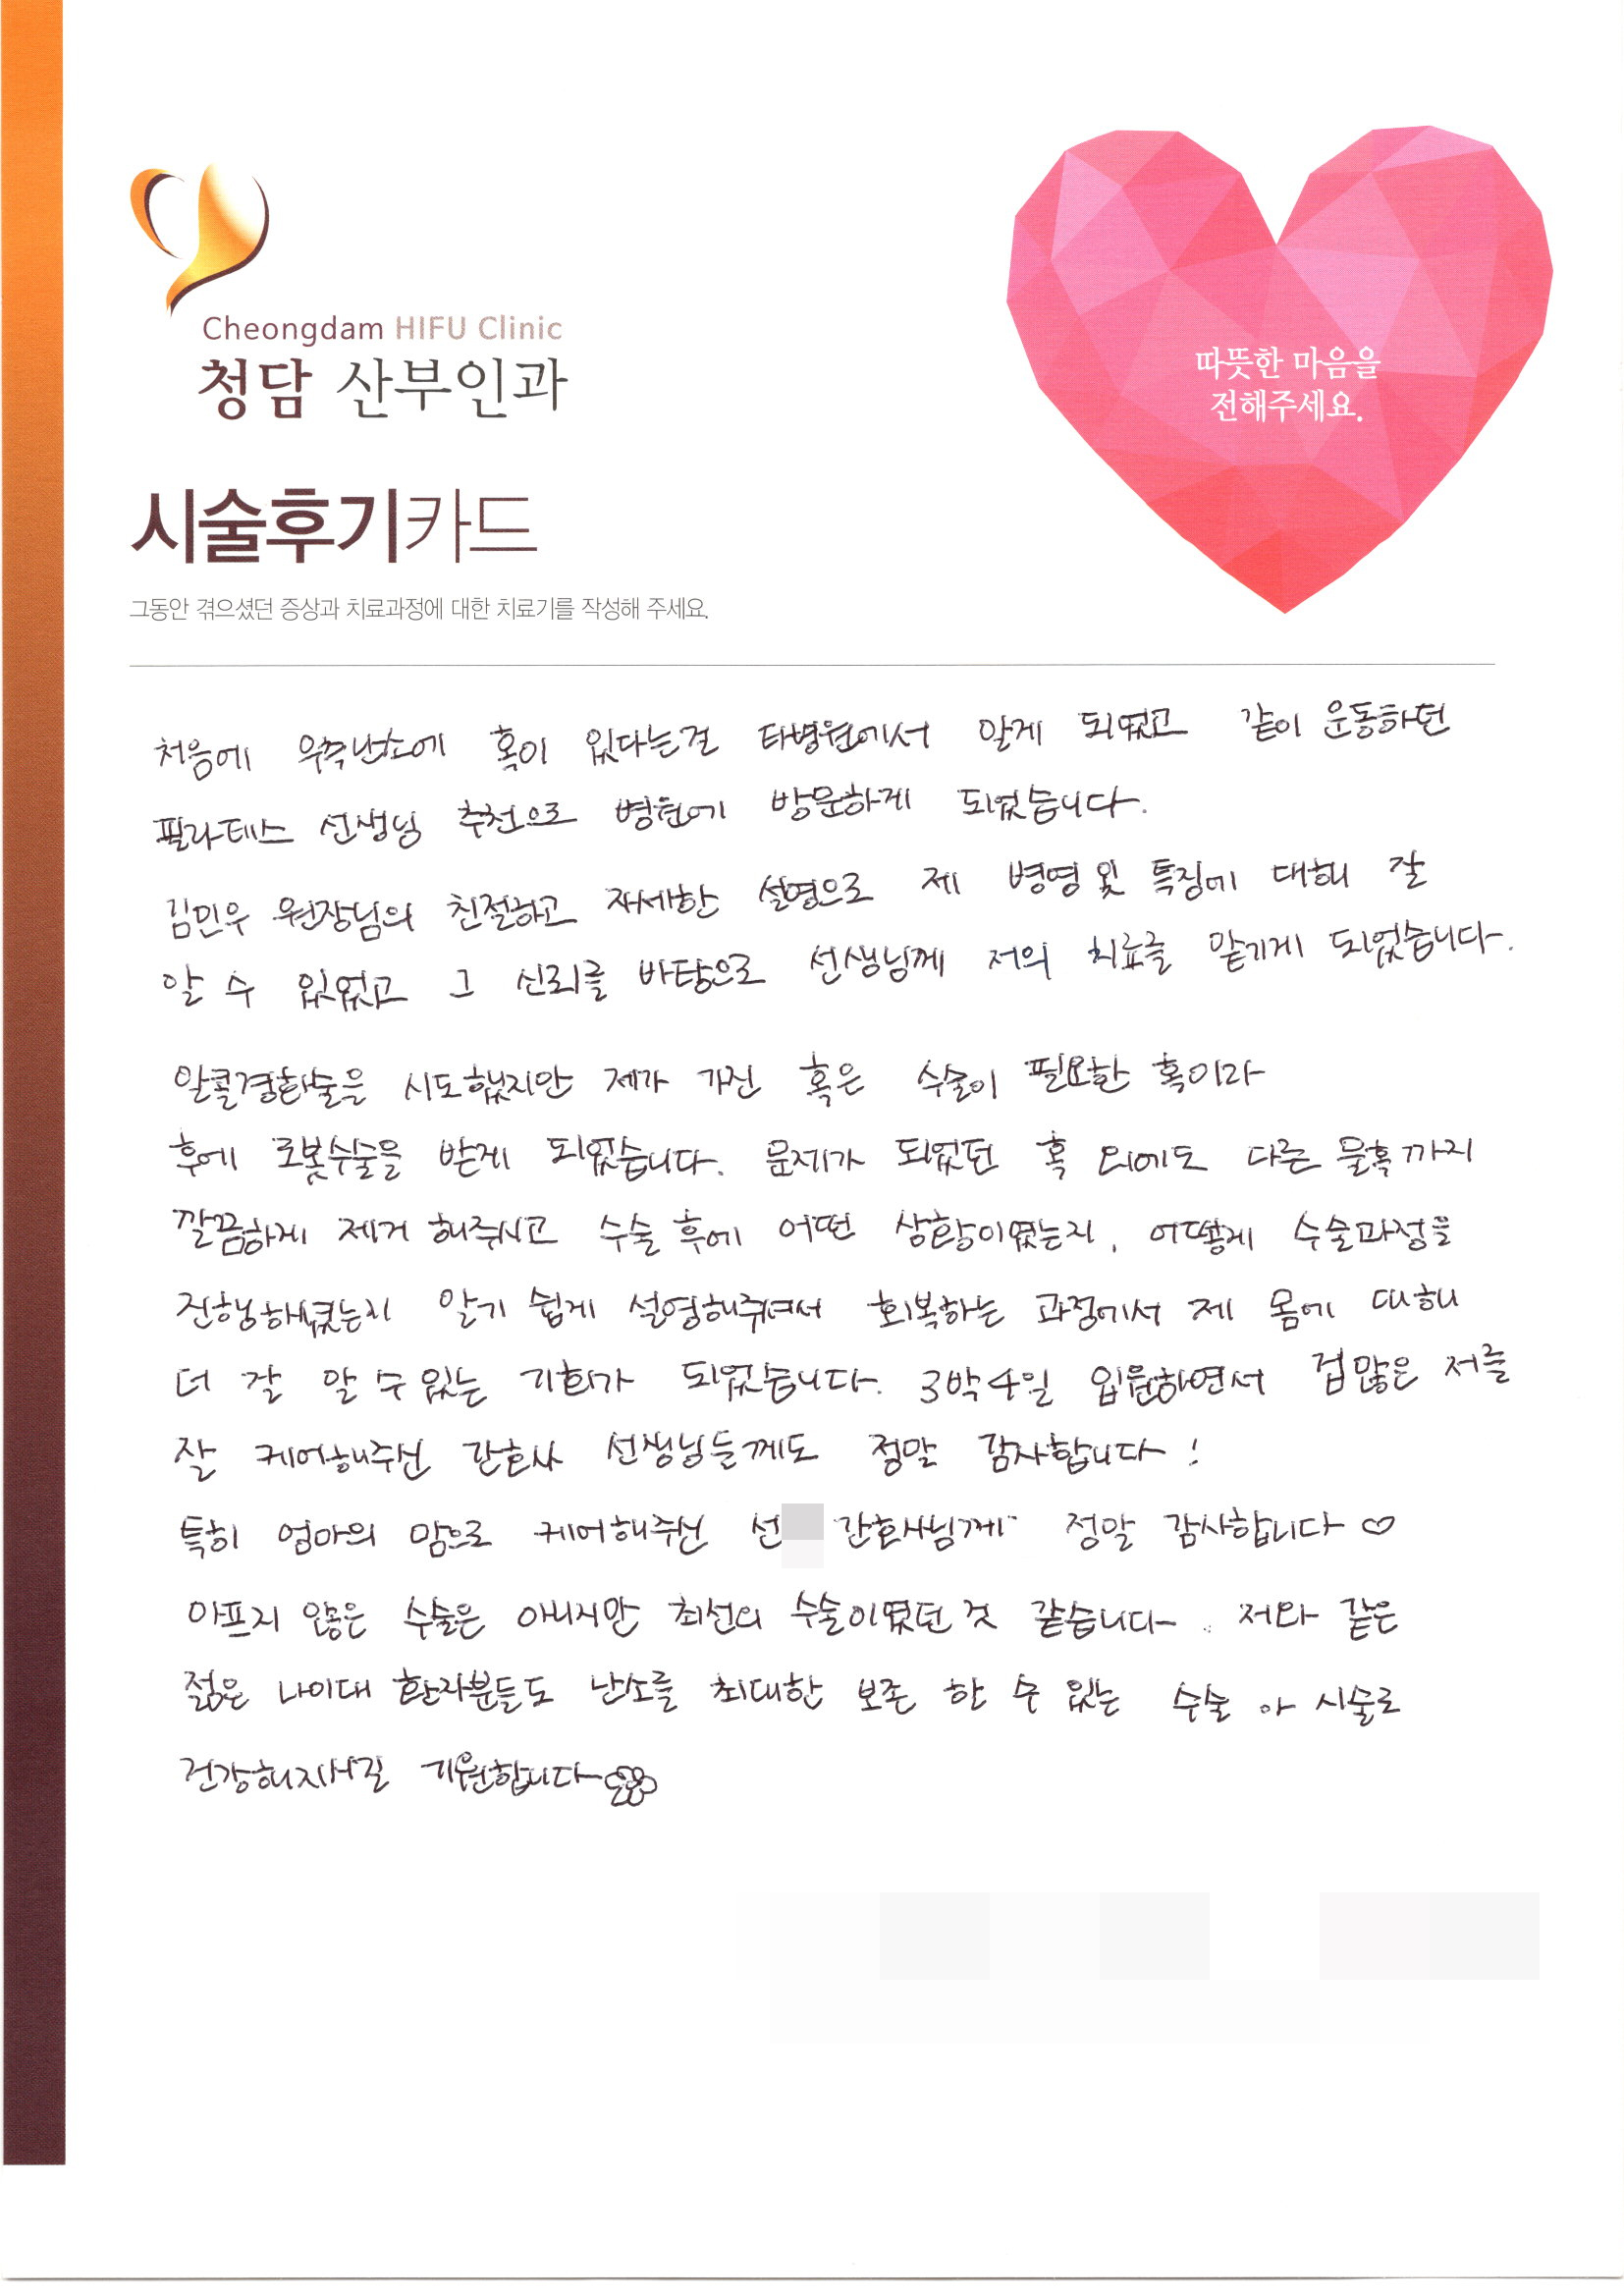 Cheongdam HIFU Clinic
청담 산부인과
따뜻한 마음을
전해주세요.
시술후기카드
그동안 겪으셨던 증상과 치료과정에 대한 치료기를 작성해 주세요.
처음에 우측난소에 혹이 있다는걸 타병원에서 알게 되었고 같이 운동하던
필라테스 선생님 추천으로 병원에 방문하게 되었습니다.
김민우 원장님의 친절하고 자세한 설명으로 제 병명 및 특징에 대해 잘
알 수 있었고 그 신뢰를 바탕으로 선생님께 저의 치료를 맡기게 되었습니다.
알콜경화술을 시도했지만 제가 가진 혹은 수술이 필요한 혹이라
후에 로봇수술을 받게 되었습니다. 문제가 되었던 혹 외에도 다른 물혹까지
깔끔하게 제거 해주시고 수술 후에 어떤 상황이였는지, 어떻게 수술과정을
진행하셨는지 알기 쉽게 설명해주셔서 회복하는 과정에서 제 몸에 대해
더 잘 알 수 있는 기회가 되었습니다. 3박4일 입원하면서 겁많은 저를
잘 케어해주신 간호사 선생님들께도 정말 감사합니다!
특히 엄마의 맘으로 케어해주신 선 간호사님께 정말 감사합니다♡
아프지 않은 수술은 아니지만 최선의 수술이였던 것 같습니다. 저와 같은
젊은 나이대 환자분들도 난소를 최대한 보존 할 수 있는 수술 아 시술로
건강해지시길 기원합니다